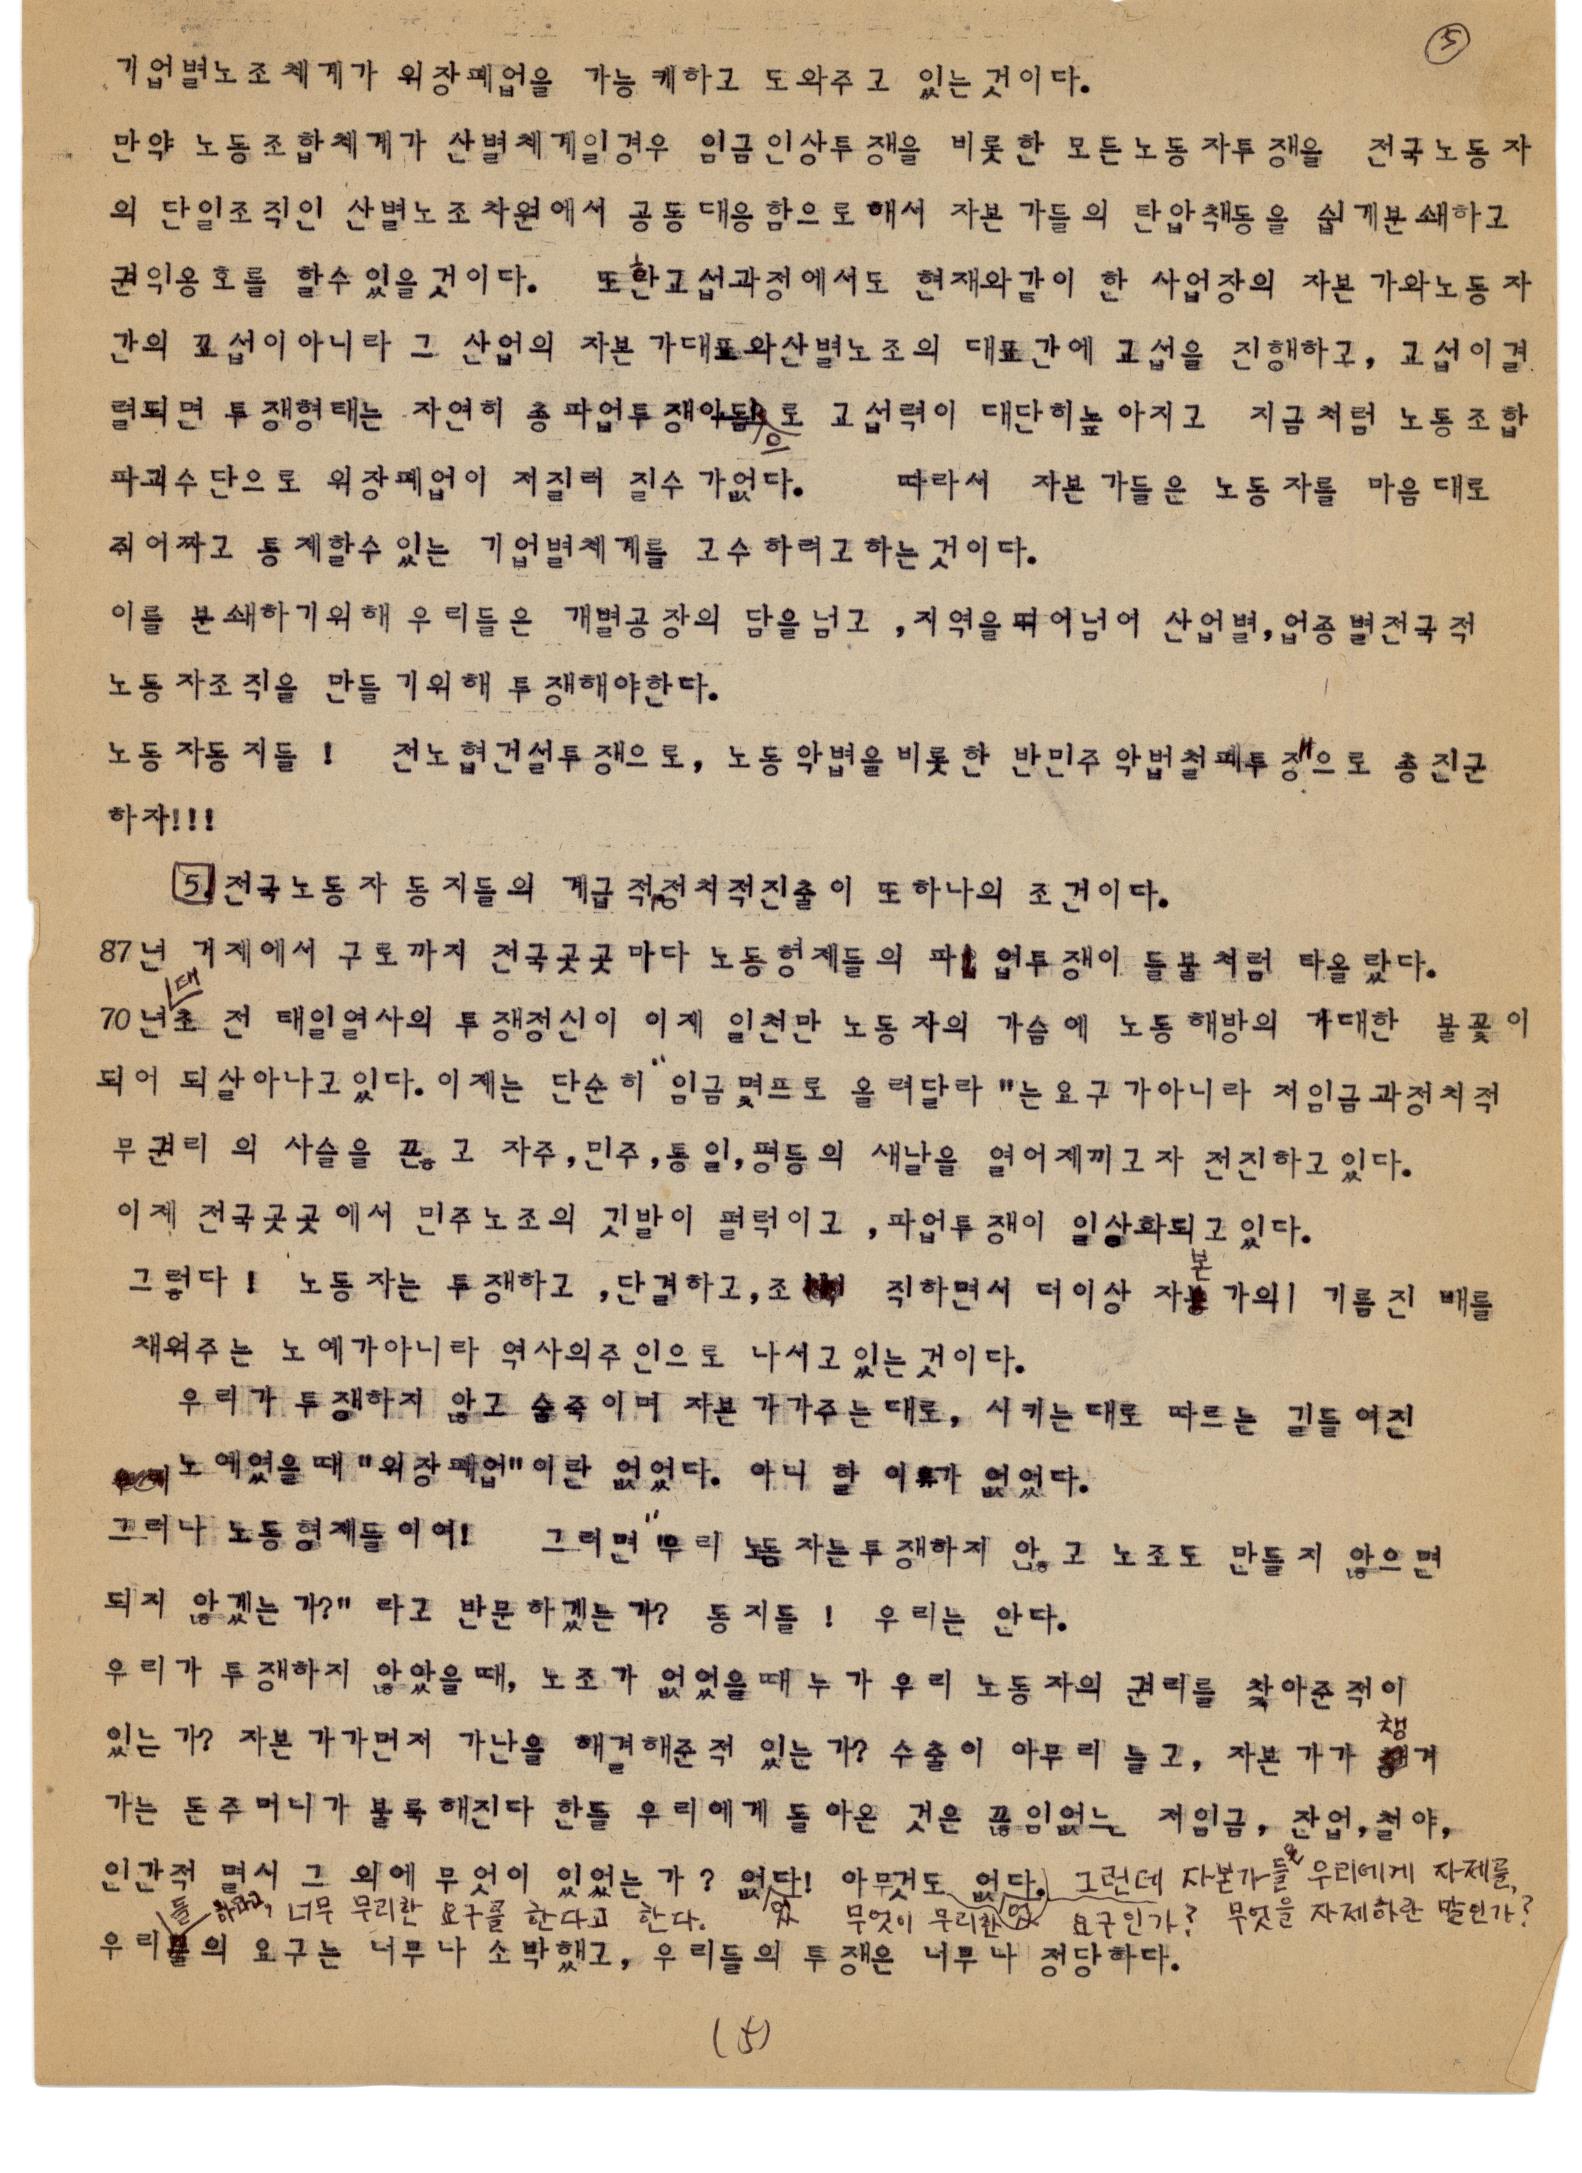 ⑤
기업별노조체계가 위장폐업을 가능케하고 도와주고 있는것이다.
만약 노동조합체계가 산별체계일경우 임금인상투쟁을 비롯한 모든노동자투쟁을 전국노동자
의 단일조직인 산별노조차원에서 공동대응함으로해서 자본가들의 탄압책동을 쉽게분쇄하고
권익옹호를 할수있을것이다. 또한교섭과정에서도 현재와같이 한 사업장의 자본가와노동자
간의 교섭이아니라 그 산업의 자본가대표와산별노조의 대표간에 교섭을 진행하고, 교섭이결
렬되면 투쟁형태는 자연히 총파업투쟁으로 교섭력이 대단히높아지고 지금처럼 노동조합
파괴수단으로 위장폐업이 저질러 질수가없다. 따라서 자본가들은 노동자를 마음대로
쥐어짜고 통제할수있는 기업별체계를 고수하려고하는것이다.
이를 분쇄하기위해 우리들은 개별공장의 담을넘고 ,지역을뛰어넘어 산업별,업종별전국적
노동자조직을 만들기위해 투쟁해야한다.
노동자동지들 ! 전노협건설투쟁으로, 노동악법을비롯한 반민주악법철폐투쟁"으로 총진군
하자!!!
5. 전국노동자 동지들의 계급적,정치적진출이 또하나의 조건이다.
87년 거제에서 구로까지 전국곳곳마다 노동형제들의 파 업투쟁이 들불처럼 타올랐다.
대
70년초 전 태일열사의 투쟁정신이 이제 일천만 노동자의 가슴에 노동해방의 거대한 불꽃이
되어 되살아나고있다.이제는 단순히 "임금몇프로 올려달라 "는요구가아니라 저임금과정치적
무권리 의 사슬을 끊고 자주,민주,통일,평등의 새날을 열어제끼고자 전진하고있다.
이제 전국곳곳에서 민주노조의 깃발이 펄럭이고 ,파업투쟁이 일상화되고있다.
그렇다 ! 노동자는 투쟁하고 ,단결하고,조 직하면서 더이상 자본가의 기름진 배를
채워주는 노예가아니라 역사의주인으로 나서고있는것이다.
우리가 투쟁하지 않고 숨죽이며 자본가가주는대로, 시키는대로 따르는 길들여진
노예였을때 "위장폐업"이란 없었다. 아니 할 이유가 없었다.
그러나 노동형제들이여! 그러면 "우리 노동자는투쟁하지 않고 노조도 만들지 않으면
되지 않겠는가?" 라고 반문하겠는가? 동지들 ! 우리는 안다.
우리가 투쟁하지 않았을때, 노조가 없었을때누가 우리 노동자의 권리를 찾아준적이
있는가? 자본가가먼저 가난을 해결해준적 있는가? 수출이 아무리 늘고, 자본가가 챙겨
가는 돈주머니가 불룩해진다 한들 우리에게 돌아온 것은 끊임없는 저임금, 잔업,철야,
인간적 멸시 그 외에 무엇이 있었는가? 없다! 아무것도 없다. 그런데 자본가들은 우리에게 자제를,
하라고, 너무 무리한 요구를 한다고 한다. 무엇이 무리한 요구인가? 무엇을 자제하란 말인가?
우리들의 요구는 너무나 소박했고, 우리들의 투쟁은 너무나 정당하다.
(5)